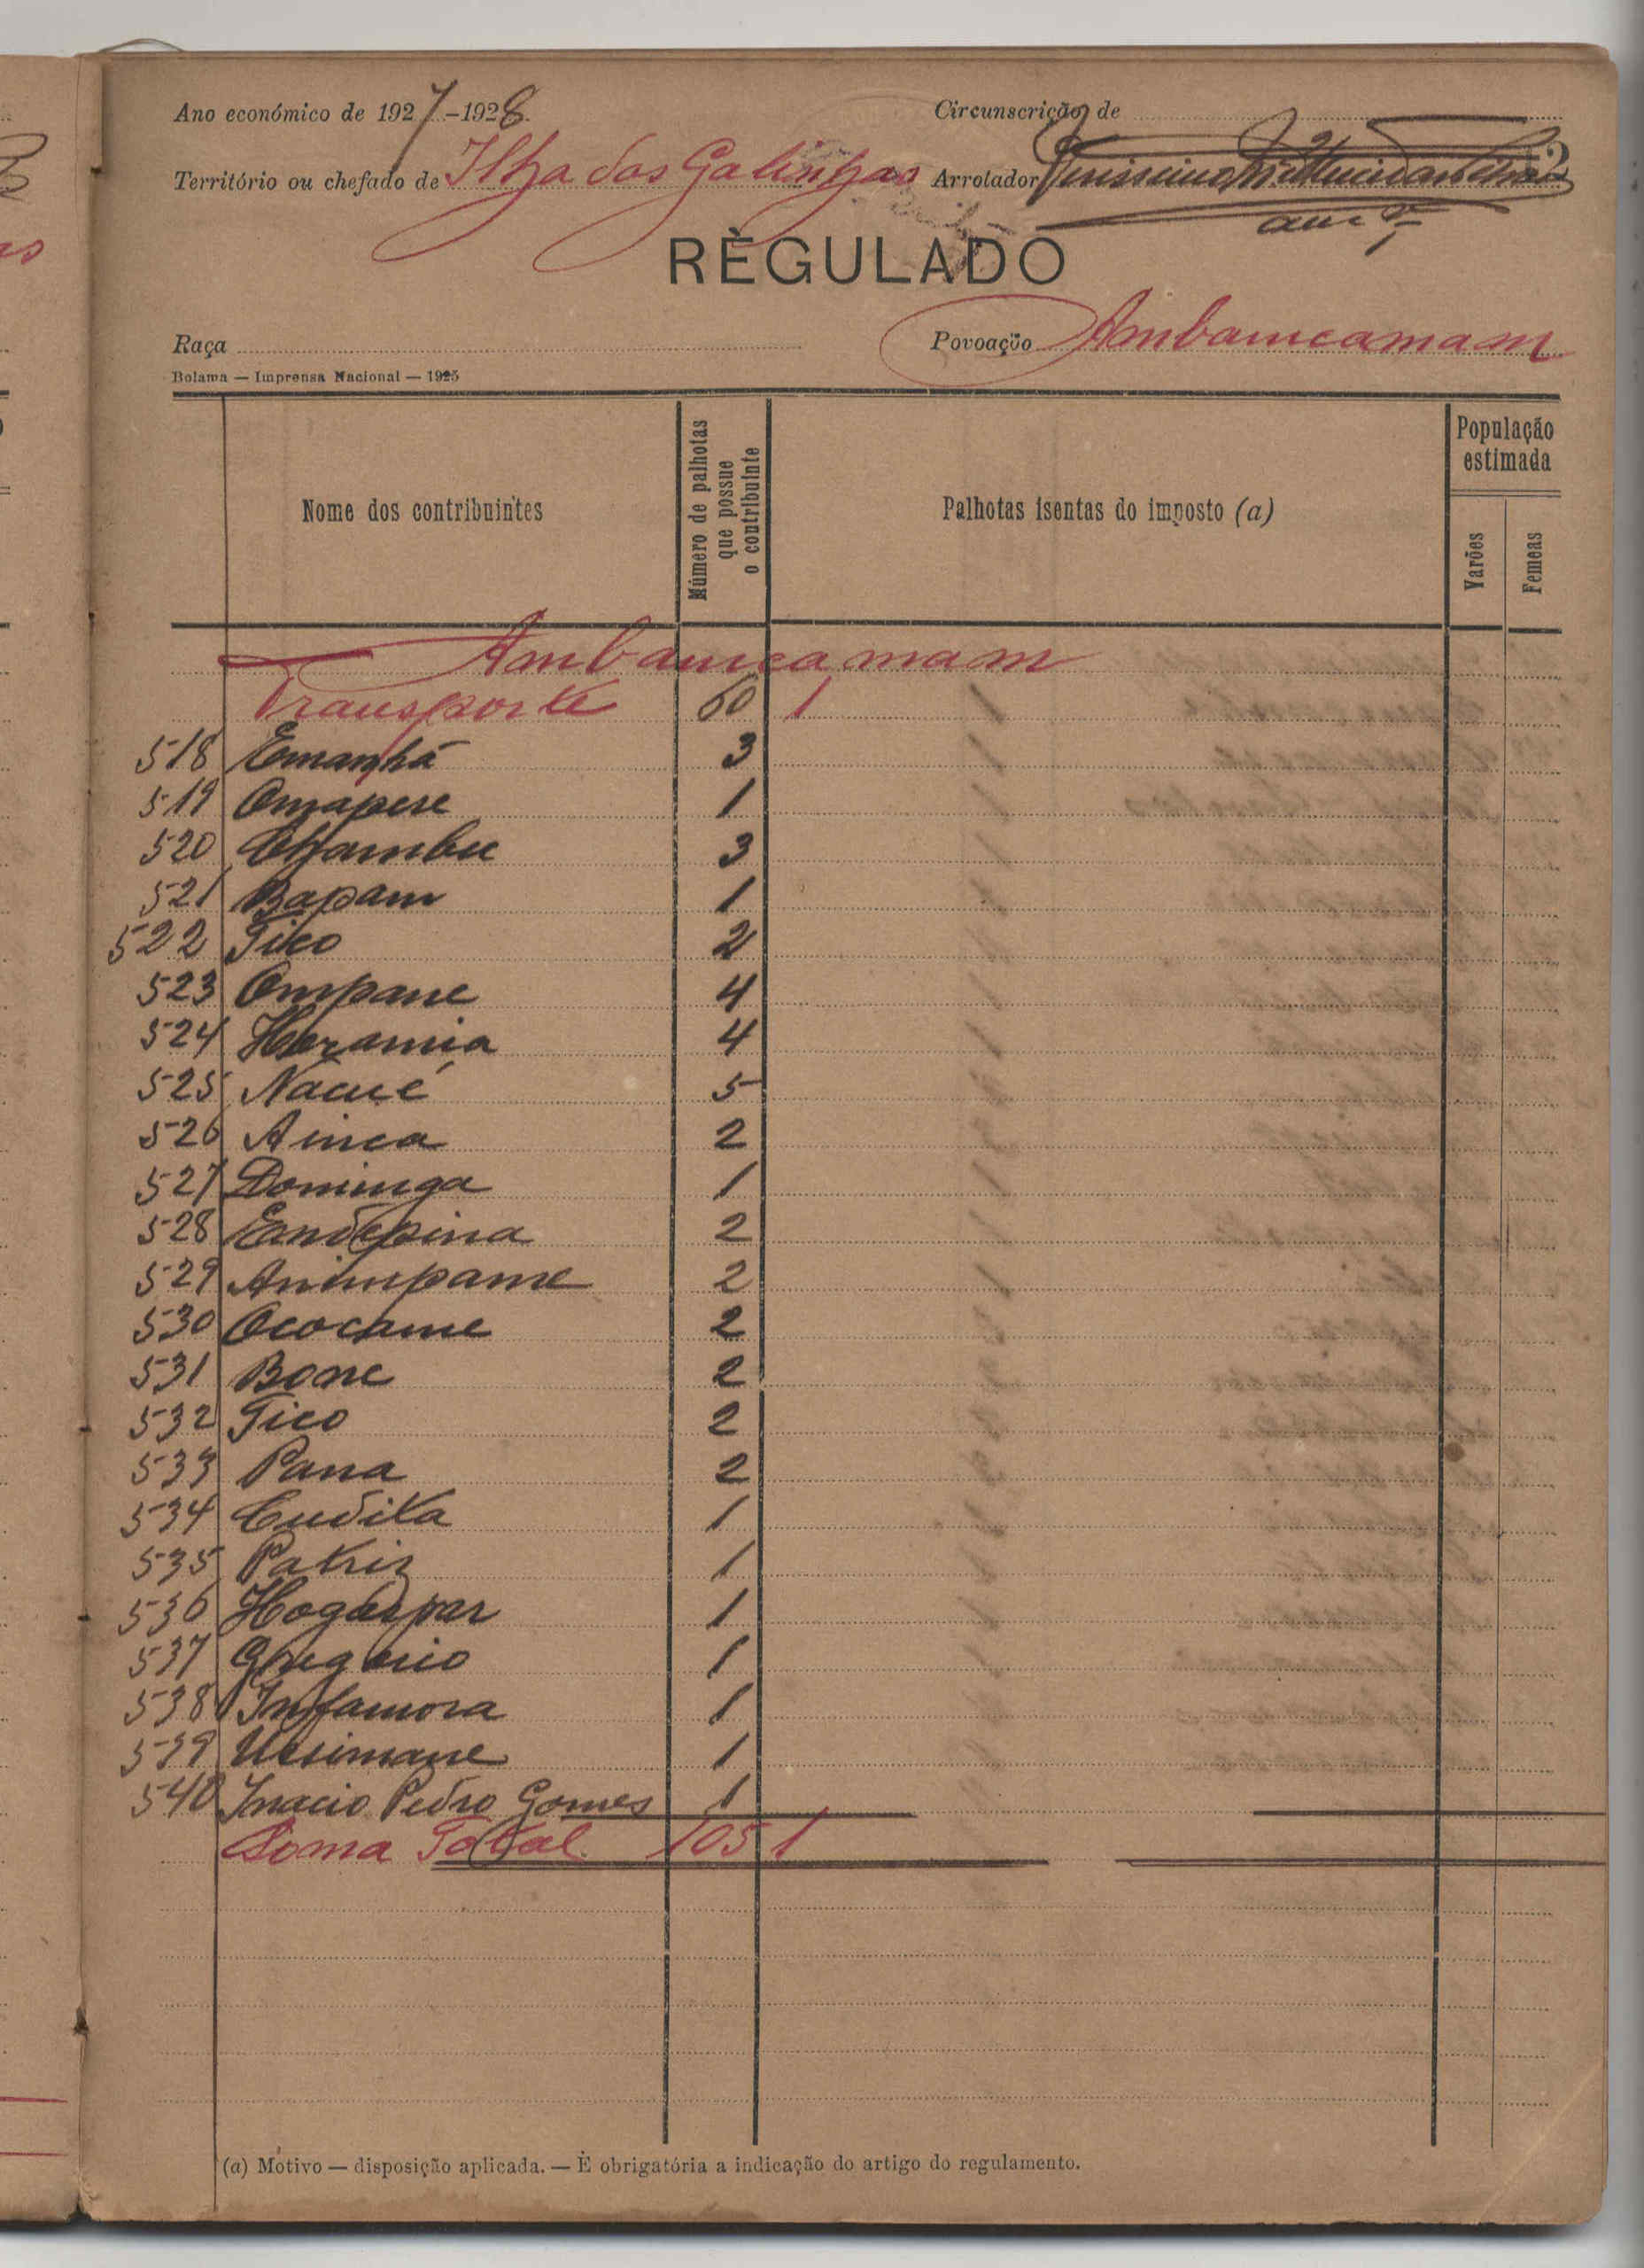 Ano económico de 1927-1928.
Circunscrição de
Território ou chefado de Ilha das Galinhas
Arrolador
12
RÈGULADO
Raça
Povoação Ambancamam
Bolama — Imprensa Nacional — 1925
Nome dos contribuintes
Número de palhotas que possue o contribuinte
Palhotas isentas do imposto (a)
População estimada
Varões
Femeas
Ambancamam
Transporte 60 1
518 Emanhá 3
519 Onzapere 1
520 3
521 Bapam 1
522 Tico 2
523 Ompane 4
524 4
525 Nacué 5
526 Ainca 2
527 Dominga 1
528 Eandepina 2
529 Animpame 2
530 Ococame 2
531 Bone 2
532 Tico 2
533 Pana 2
534 Cudita 1
535 1
536 Hogaspar 1
537 Gregorio 1
538 Infamora 1
539 1
540 Inacio Pedro Gomes 1
Soma Total 105 1
(a) Motivo — disposição aplicada. — È obrigatória a indicação do artigo do regulamento.